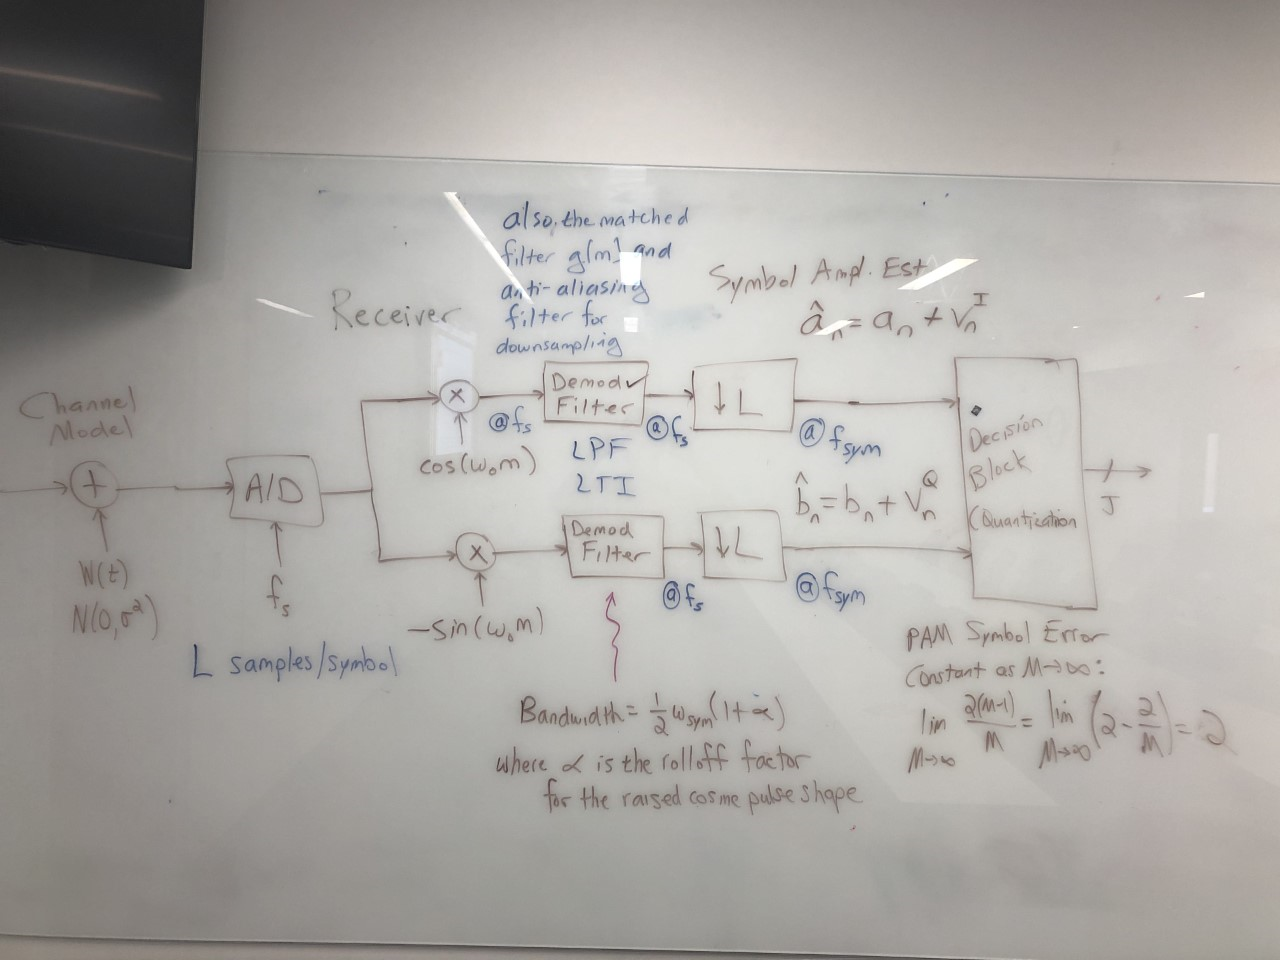 also, the matched
filter g[m] and
anti-aliasing
filter for
downsampling
Receiver
Symbol Ampl. Est
âₙ = aₙ + vₙᴵ
Channel
Model
+
W(t)
N(0,σ²)
A/D
fₛ
L samples/symbol
×
cos(ω₀m)
@fₛ
Demod
Filter
LPF
LTI
@fₛ
↓L
@fsym
×
-sin(ω₀m)
Demod
Filter
@fₛ
↓L
@fsym
b̂ₙ = bₙ + vₙQ
Decision
Block
(Quantization
J
Bandwidth = ½ ωsym(1+α)
where α is the rolloff factor
for the raised cosine pulse shape
PAM Symbol Error
Constant as M→∞:
lim M→∞ 2(M-1)/M = lim M→∞ (2 - 2/M) = 2